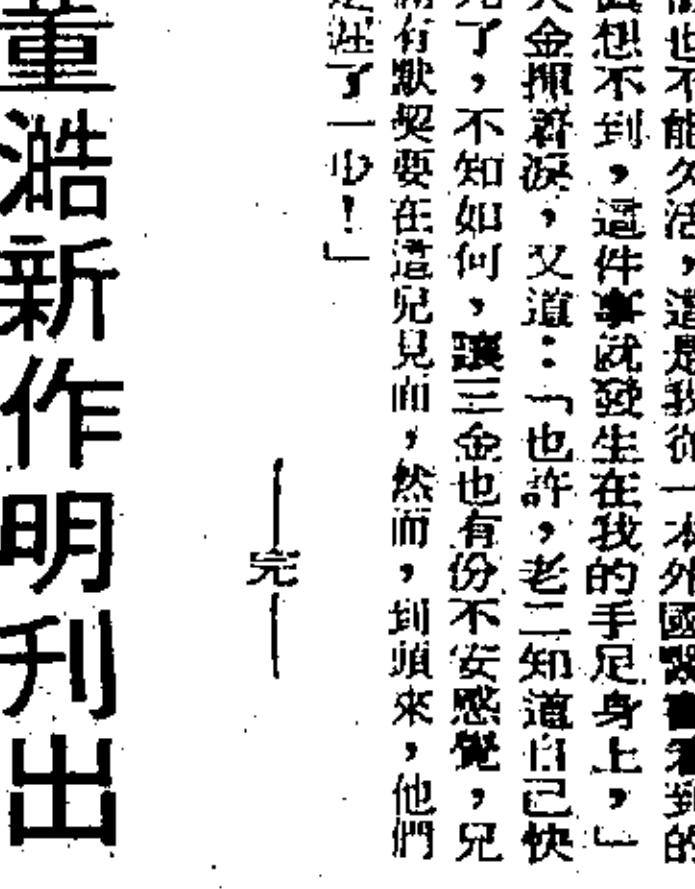 也不能久活，這是我從一本外國醫書看到的
想不到，這件事就發生在我的手足身上，」
大金揮著淚，又道：「也許，老二知道自己快
死了，不知如何，讓三金也有份不安感覺，兄
有默契要在這兒見面，然而，到頭來，他們
遲了一步！」
—完—
董澔新作明刊出